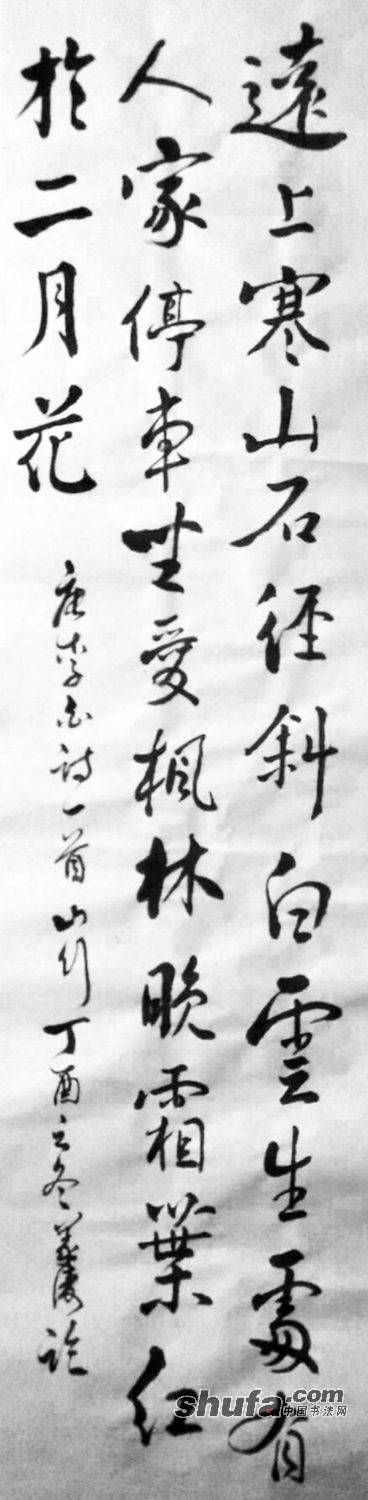 遠上寒山石径斜白雲生處有
人家停車坐愛楓林晚霜葉红
於二月花
唐李白詩一首山行丁酉之冬
shufa.com
中国书法网